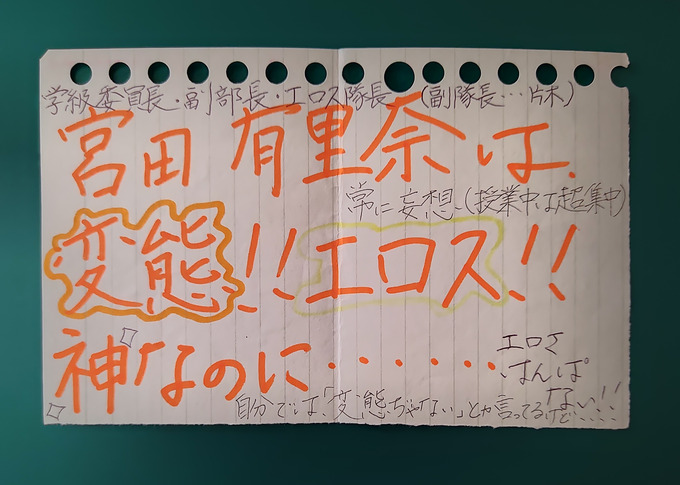 学級委員長・副部長・エロス隊長 (副隊長…片木)
宮田 有里奈は
常に妄想、(授業中は超集中)
変態!!エロス!!
神なのに・・・・・・・
エロさ
はんぱ
ない!!
自分では、「変態ぢゃない」とか言ってるけど!!!